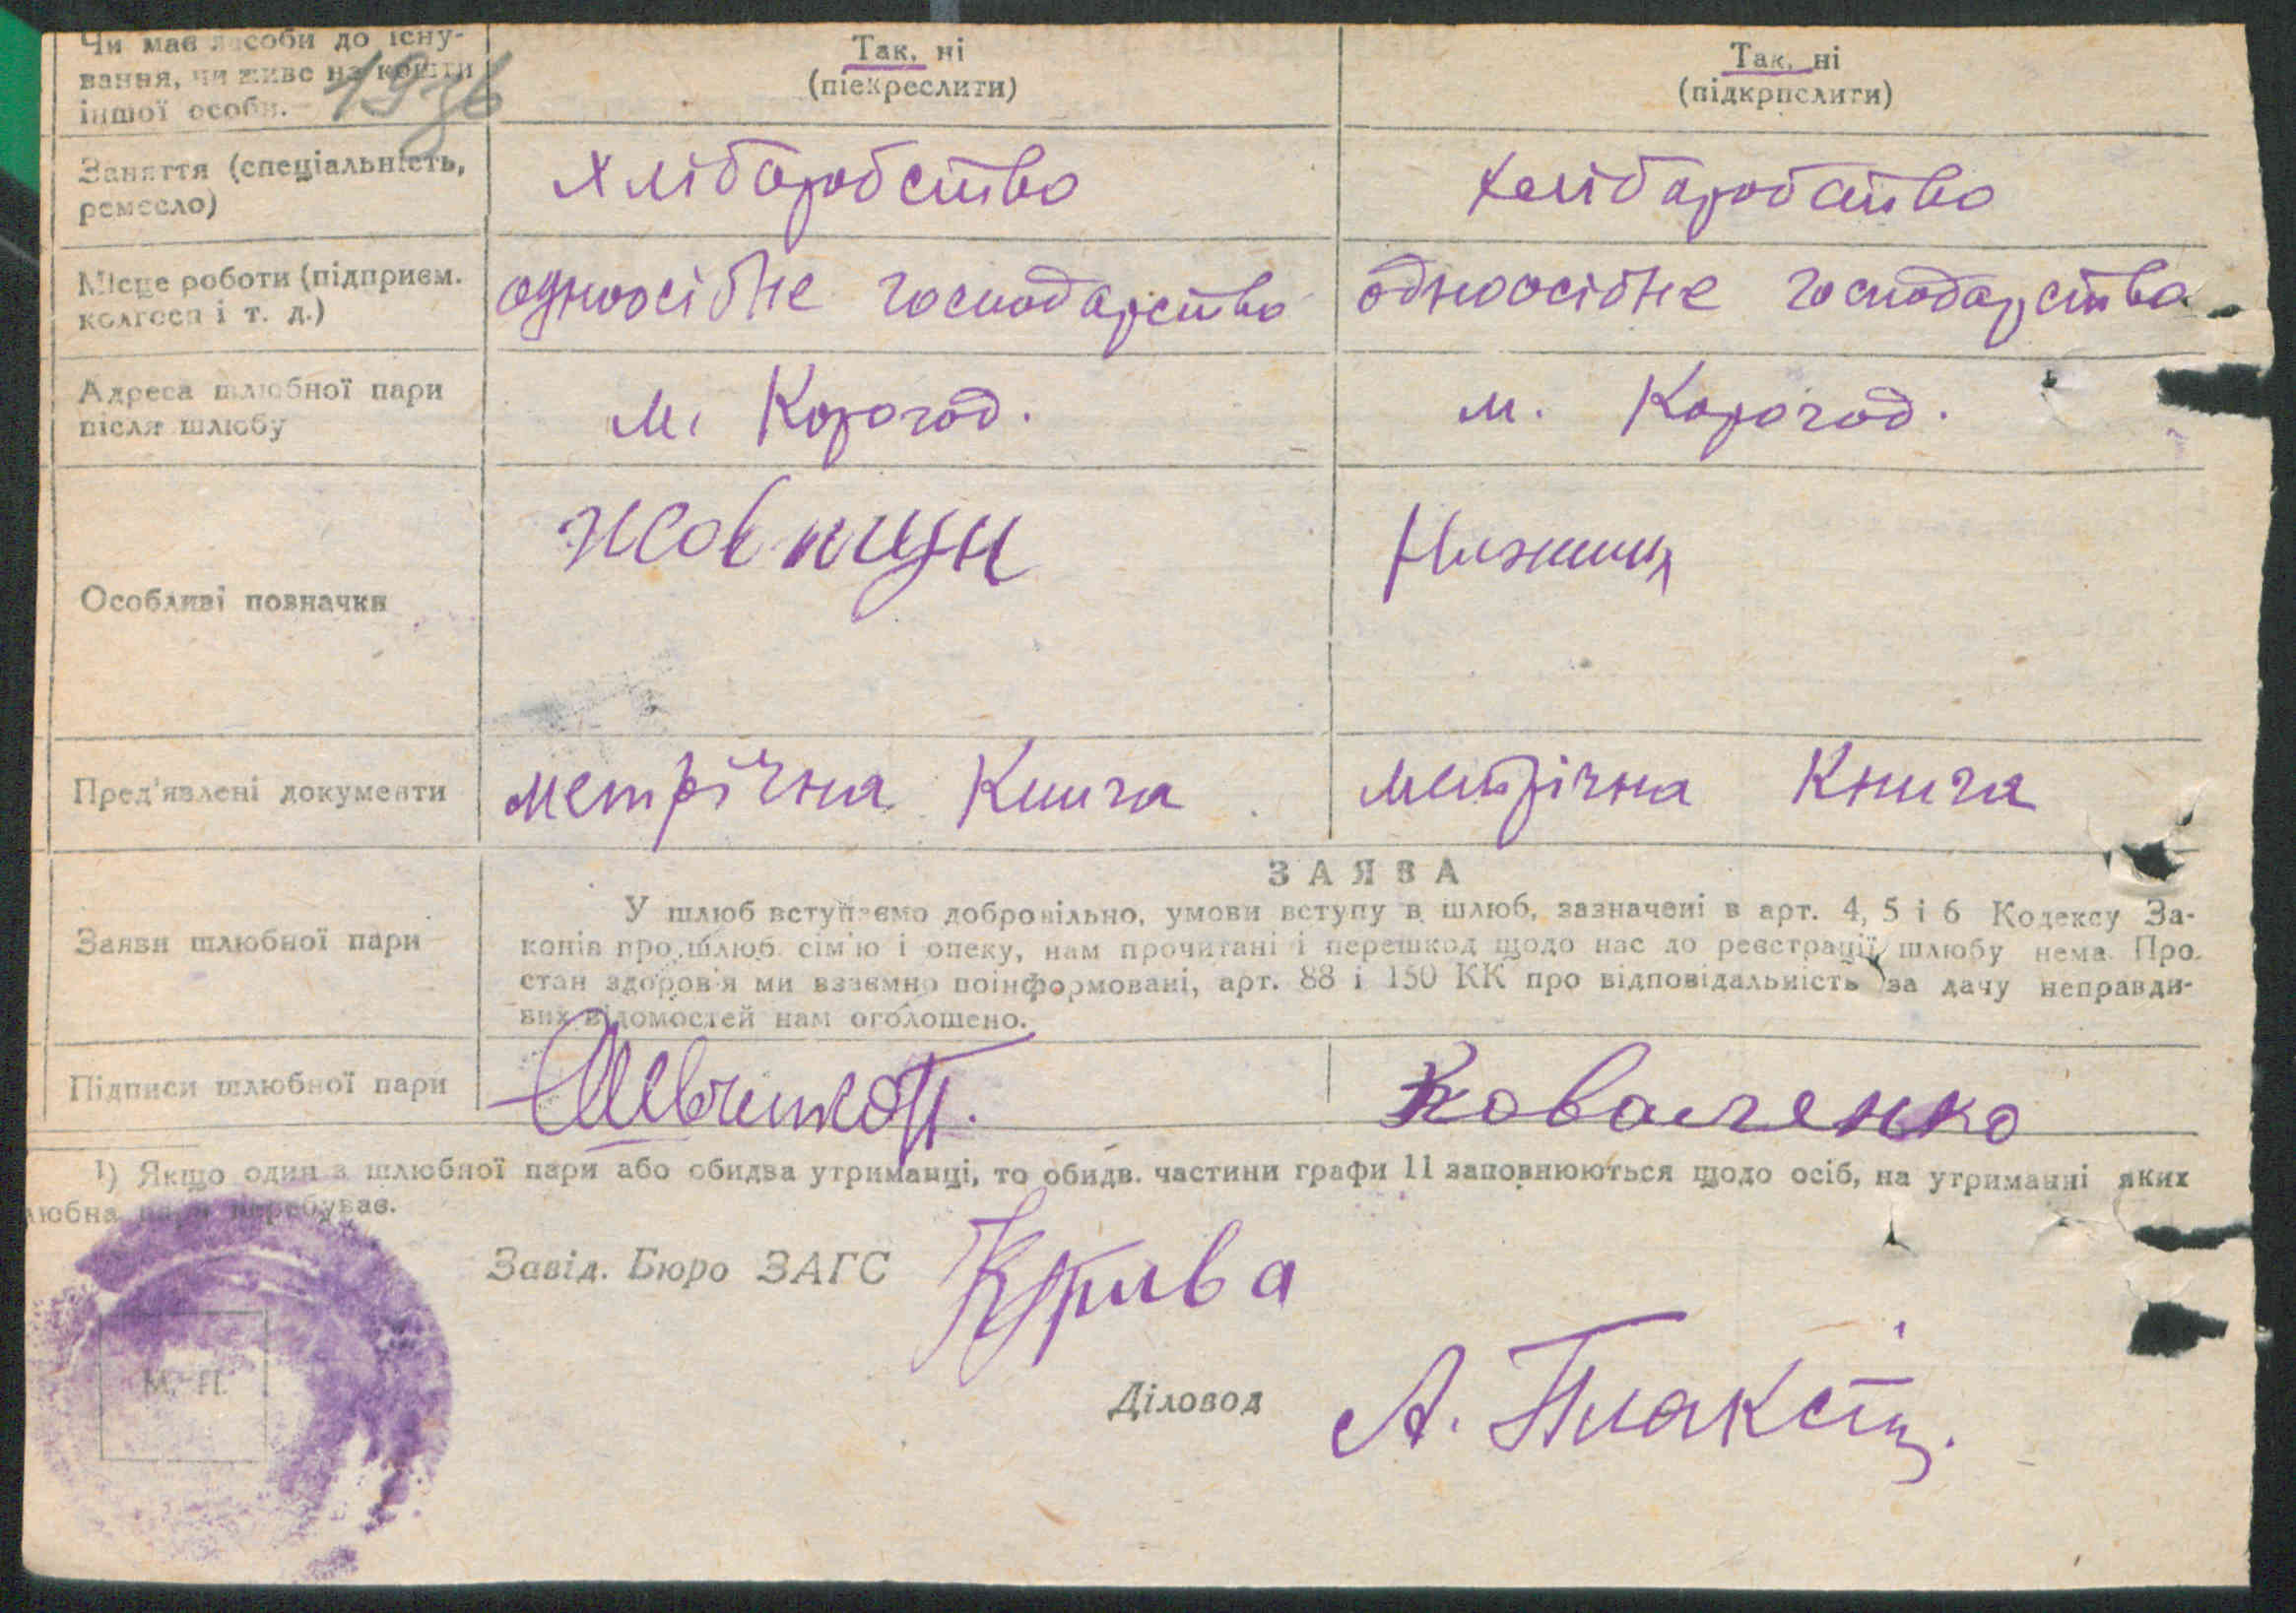 Чи має засоби до існу-
вання, чи живе на кошти
іншої особи.
1936
Так, ні
(піекреслити)
Так, ні
(підкрпслити)
Заняття (спеціальність,
ремесло)
хліборобство
хліборобство
Місце роботи (підприєм.
колгосп і т. д.)
односібне господарство
одноосібне господарство
Адреса шлюбної пари
після шлюбу
м. Корогод.
м. Корогод.
Особливі позначки
Пред'явлені документи
метрічна Книга
метрічна Книга
Заяви шлюбної пари
ЗАЯВА
У шлюб вступаємо добровільно, умови вступу в шлюб, зазначені в арт. 4, 5 і 6 Кодексу За-
конів про шлюб сім'ю і опеку, нам прочитані і перешкод щодо нас до реєстрації шлюбу нема. Про
стан здоров'я ми взаємно поінформовані, арт. 88 і 150 КК про відповідальність за дачу неправди-
вих відомостей нам оголошено.
Підписи шлюбної пари
Коваленко
1) Якщо один з шлюбної пари або обидва утриманці, то обидв. частини графи 11 заповнюються щодо осіб, на утриманні яких
любна пара перебуває.
Завід. Бюро ЗАГС Крива
М. П.
Діловод А.